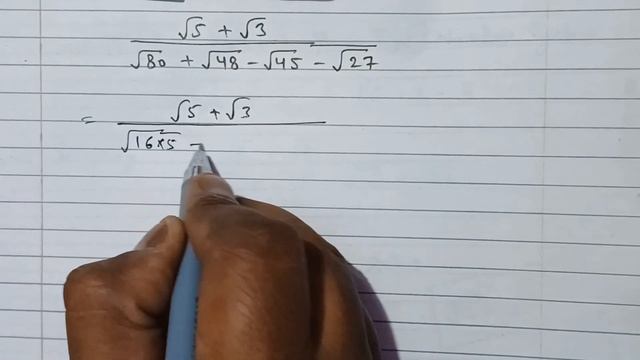 √5 + √3
√80 + √48 - √45 - √27
= √5 + √3
√16×5